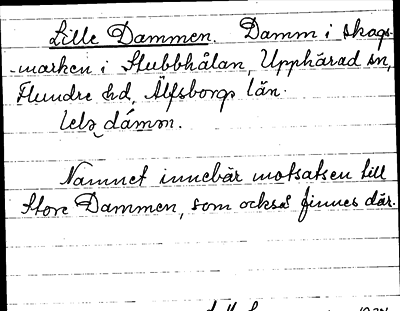 Lille Dammen. Damm i skogs-
marken i Stubbhålan, Upphärad sn,
Flundre hd, Älfsborgs län.
lelə dámɔn.
Namnet innebär motsatsen till
Store Dammen, som också finnes där.